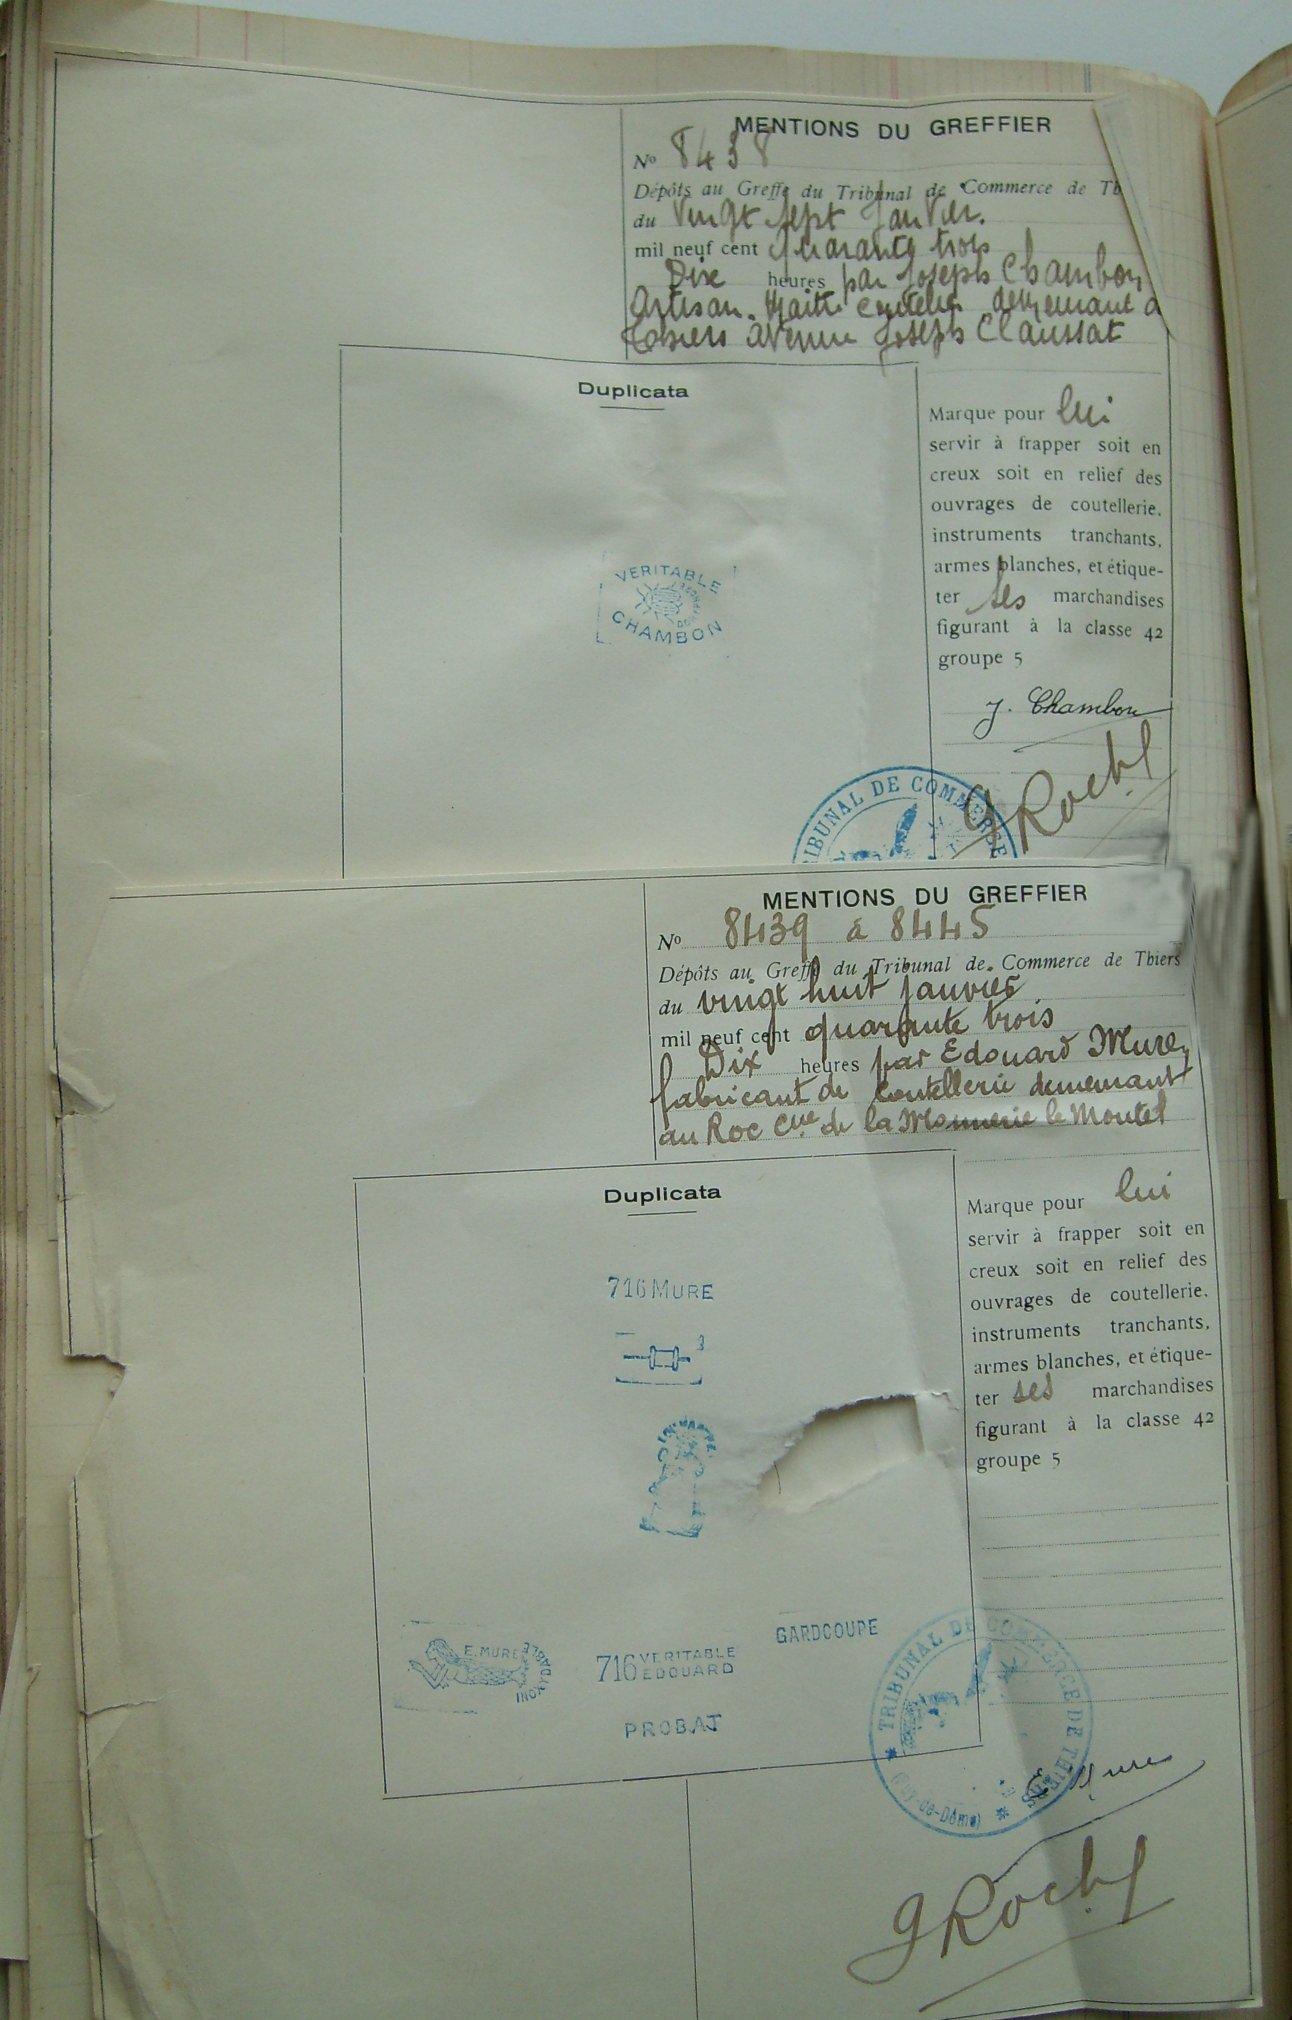 MENTIONS DU GREFFIER
No 8438
Dépôts au Greffe du Tribunal de Commerce de Th
du Vingt sept Janvier.
mil neuf cent quarante trois
Dixe heures par Joseph Chambon,
Artisan. Maitre coutelier demeurant à
Thiers avenue Joseph Claussat
Duplicata
Marque pour lui
servir à frapper soit en
creux soit en relief des
ouvrages de coutellerie,
instruments tranchants,
armes blanches, et étique-
ter ses marchandises
figurant à la classe 42
groupe 5
VERITABLE
CHAMBON
J. Chambon
TRIBUNAL DE COMMERCE
MENTIONS DU GREFFIER
No 8439 à 8445
Dépôts au Greffe du Tribunal de Commerce de Thiers
du vingt huit janvier
mil neuf cent quarante trois
Dix heures par Edouard Mure,
fabricant de coutellerie demeurant
au Roc Cne de la Monnerie le Montel
Duplicata
Marque pour lui
servir à frapper soit en
creux soit en relief des
ouvrages de coutellerie,
instruments tranchants,
armes blanches, et étique-
ter ses marchandises
figurant à la classe 42
groupe 5
716 MURE
GARDCOUPE
E. MURE INOXYDABLE
716 VERITABLE
EDOUARD
PROBAT
TRIBUNAL DE COMMERCE DE THIERS
(Puy-de-Dôme)
E Mure